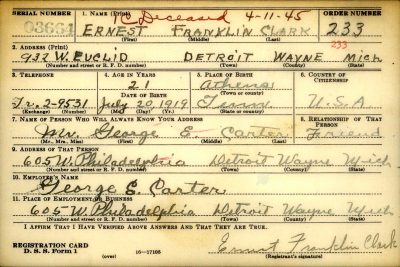 SERIAL NUMBER
1. NAME (Print)
ORDER NUMBER
Deceased 4-11-45
ERNEST FRANKLIN CLARK
233
(First) (Middle) (Last)
2. ADDRESS (Print)
233
933 W. EUCLID DETROIT WAYNE MICH
(Number and street or R. F. D. number) (Town) (County) (State)
3. TELEPHONE
4. AGE IN YEARS
5. PLACE OF BIRTH
6. COUNTRY OF CITIZENSHIP
21
Athens
DATE OF BIRTH
(Town or county)
Tr. 2-9531
July 20, 1919
Tenn
U.S.A
(Exchange) (Number)
(Mo.) (Day) (Yr.)
(State or country)
7. NAME OF PERSON WHO WILL ALWAYS KNOW YOUR ADDRESS
8. RELATIONSHIP OF THAT PERSON
Mr. George E. Carter
Friend
(Mr., Mrs., Miss) (First) (Middle) (Last)
9. ADDRESS OF THAT PERSON
605 W. Philadelphia Detroit Wayne Mich
(Number and street or R. F. D. number) (Town) (County) (State)
10. EMPLOYER'S NAME
George E. Carter
11. PLACE OF EMPLOYMENT OR BUSINESS
605 W. Philadelphia Detroit Wayne Mich
(Number and street or R. F. D. number) (Town) (County) (State)
I AFFIRM THAT I HAVE VERIFIED ABOVE ANSWERS AND THAT THEY ARE TRUE.
REGISTRATION CARD
D. S. S. Form 1
(over)
16—17105
Ernest Franklin Clark
(Registrant's signature)